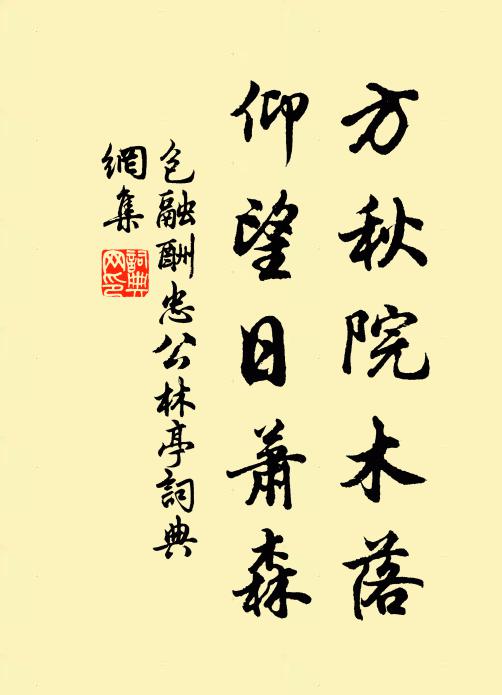 方秋院木落
仰望日蕭森
包融酬忠公林亭詞典
網集
詞典網印